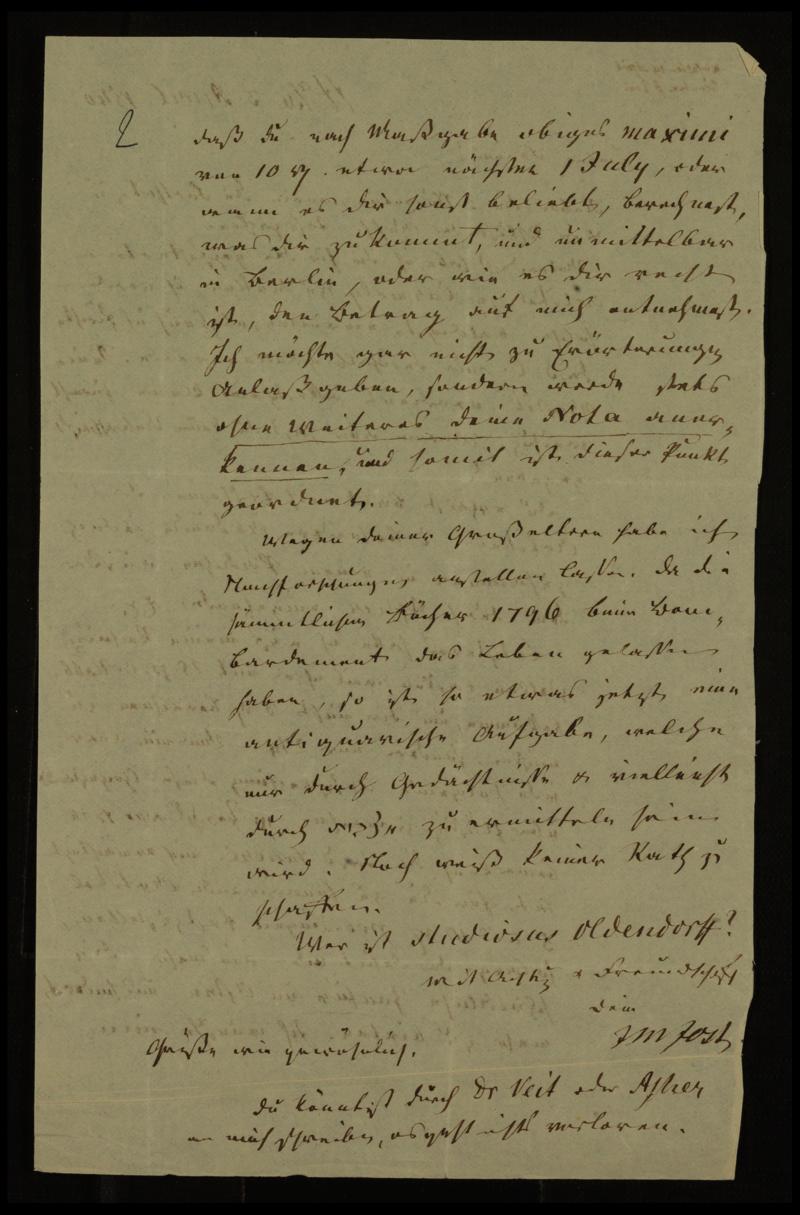 2
daß du nach Maßgabe obiges maximi
von 10 rh. etwa nächsten 1 July, oder
wenn es dir sonst beliebt, berechnest,
was dir zukommt, und unmittelbar
in Berlin, oder wie es dir recht
ist, den Betrag auf mich entnehmest.
Ich möchte gar nicht zu Erörterungen
Anlaß geben, sondern werde stets
ohne Weiteres deine Nota aner-
kennen, und somit ist dieser Punkt
geordnet.
Wegen deiner Großeltern habe ich
Nachforschungen anstellen lassen. Da die
sämmtlichen Bücher 1796 beim Bom-
bardement das Leben gelassen
haben, so ist so etwas jetzt eine
antiquarische Aufgabe, welche
nur durch Gedächtnisse & vielleicht
durch zu ermitteln sein
wird. Noch weiß keiner Rath zu
schaffen.
Wer ist studiosus Oldendorff?
Mit Achtg & Freundschaft
dein
JM Jost
Grüße wie gewöhnlich.
Du könntest durch Dr Veit oder Asher
an mich schreiben, es geht nichts verloren.